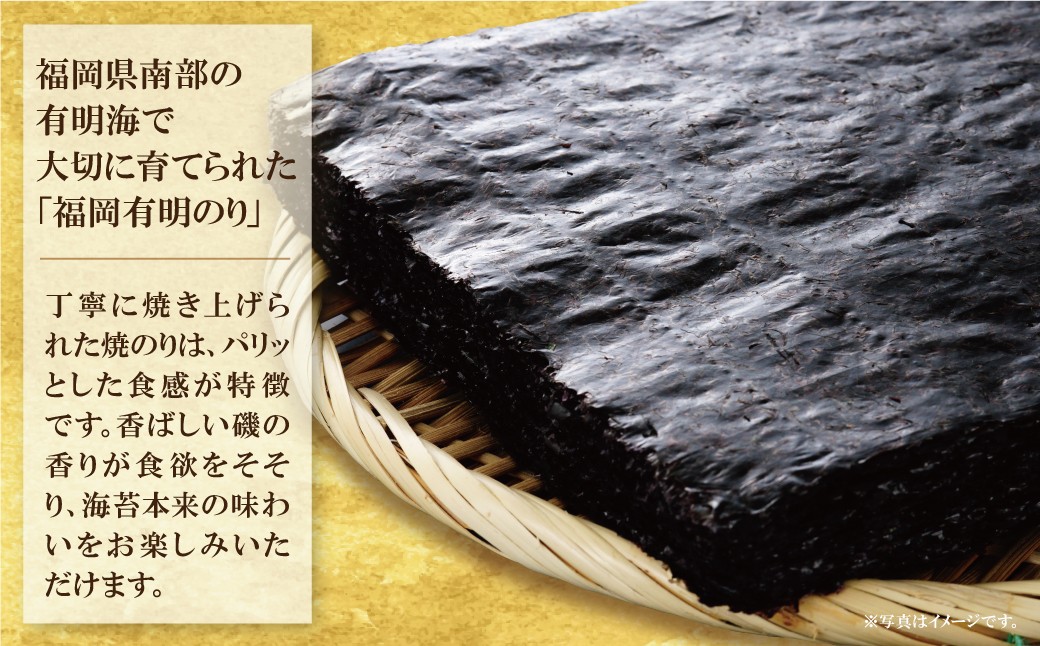 福岡県南部の
有明海で
大切に育てられた
「福岡有明のり」
丁寧に焼き上げら
れた焼のりは、パリッ
とした食感が特徴
です。香ばしい磯の
香りが食欲をそそ
り、海苔本来の味わ
いをお楽しみいた
だけます。
※写真はイメージです。